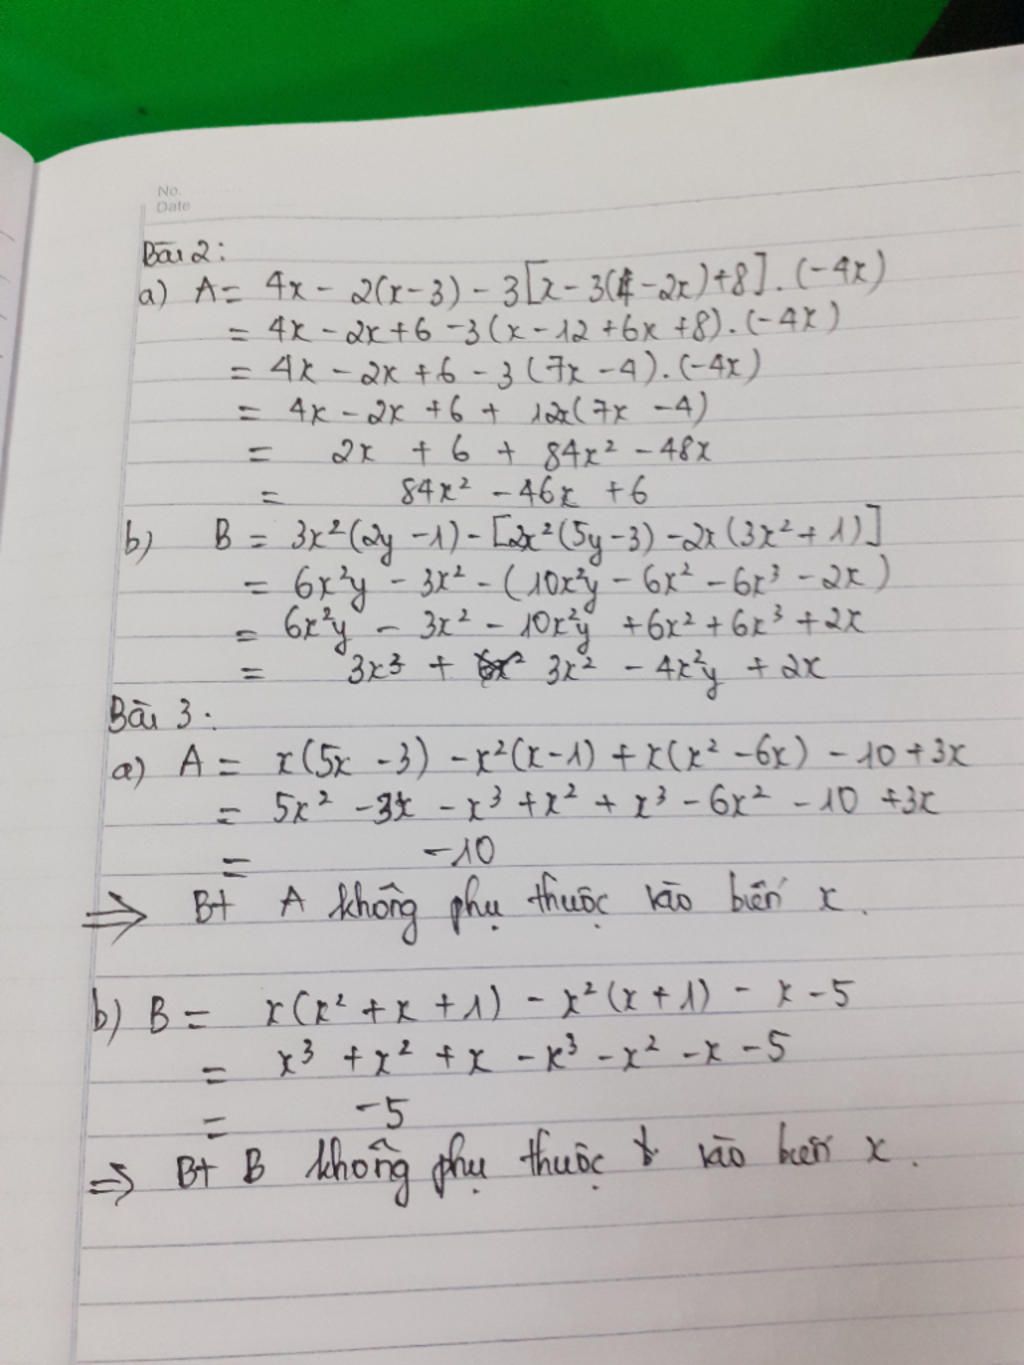 No.
Date
Bài 2:
a) A = 4x - 2(x-3) - 3[x - 3(4-2x)+8].(-4x)
= 4x - 2x + 6 - 3(x - 12 + 6x + 8).(-4x)
= 4x - 2x + 6 - 3(7x - 4).(-4x)
= 4x - 2x + 6 + 12x(7x - 4)
= 2x + 6 + 84x² - 48x
= 84x² - 46x + 6
b) B = 3x²(2y - 1) - [2x²(5y - 3) - 2x(3x² + 1)]
= 6x²y - 3x² - (10x²y - 6x² - 6x³ - 2x)
= 6x²y - 3x² - 10x²y + 6x² + 6x³ + 2x
= 3x³ + 3x² - 4x²y + 2x
Bài 3:
a) A = x(5x - 3) - x²(x - 1) + x(x² - 6x) - 10 + 3x
= 5x² - 3x - x³ + x² + x³ - 6x² - 10 + 3x
= -10
⇒ BT A không phụ thuộc vào biến x.
b) B = x(x² + x + 1) - x²(x + 1) - x - 5
= x³ + x² + x - x³ - x² - x - 5
= -5
⇒ BT B không phụ thuộc vào biến x.